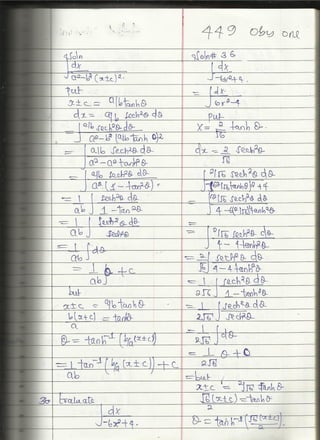 449 Obs one
Soln
∫ dx / a²-b²(x±c)²
Put
x±c = a/b tanhθ
dx = a/b sech²θ dθ
= ∫ a/b sech²θ dθ / a²-b²(a/b tanhθ)²
= ∫ a/b sech²θ dθ / a²-a²tanh²θ
= ∫ a/b sech²θ dθ / a²(1-tan²θ)
= 1/ab ∫ sech²θ dθ / 1-tan²θ
= 1/ab ∫ sech²θ dθ / sech²θ
= 1/ab ∫ dθ
= 1/ab θ + c
but
x±c = a/b tanhθ
b(x±c)/a = tanθ
θ = tanh⁻¹(b/a(x±c))
= 1/ab tan⁻¹(b/a(x±c)) + c
36 Evaluate
∫ dx / -6x²+4.
Soln # 36
∫ dx / -6x²+4
= ∫ dx / 6x²-4
Put
x = 2/√6 tanhθ
dx = 2/√6 sech²θ
∫ 2/√6 sech²θ dθ
∫ 2/√6 sech²θ dθ
=
∫ 2/√6 sech²θ dθ / 4-4tanh²θ
= 2/√6 ∫ sech²θ dθ / 4-4tanh²θ
= 1/2√6 ∫ sech²θ dθ / 1-tanh²θ
= 1/2√6 ∫ sech²θ dθ / sech²θ
= 1/2√6 ∫ dθ
= 1/2√6 θ + C
=but
x±c = 2/√6 tanhθ
√6(x±c)/2 = tanhθ
θ = tanh⁻¹(√6(x±c)/2)